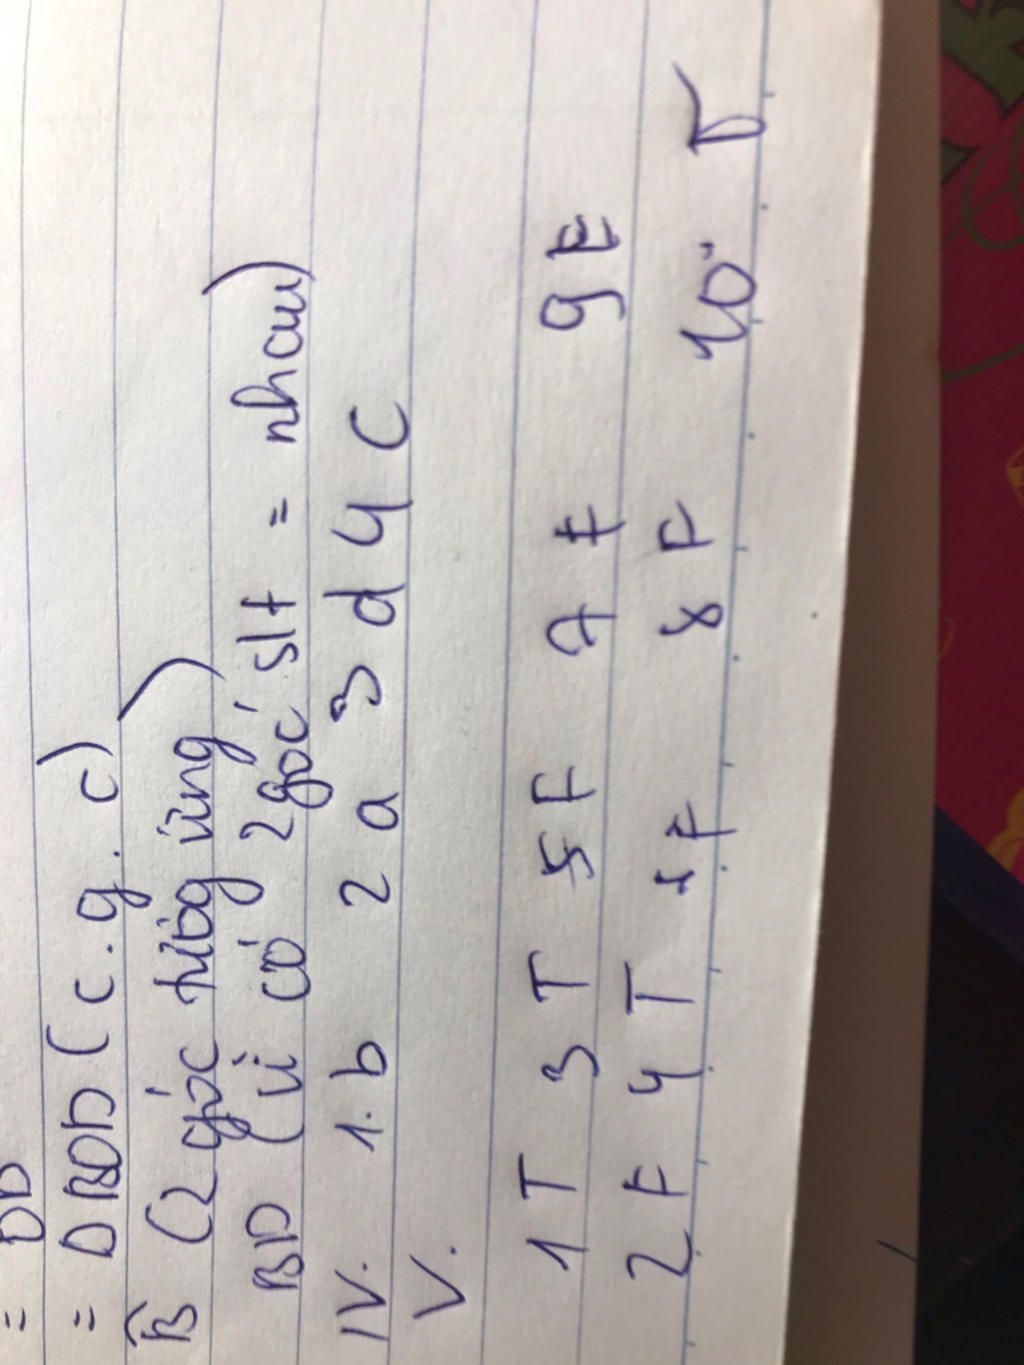 = BD
= ΔBOD (c.g.c)
B̂ (2 góc tương ứng)
BD (vì có 2 góc slt = nhau)
IV. 1.b 2 a 3 d 4 C
V.
1 T 3 T 5 F 7 F 9 F
2 F 4 T F 8 F 10